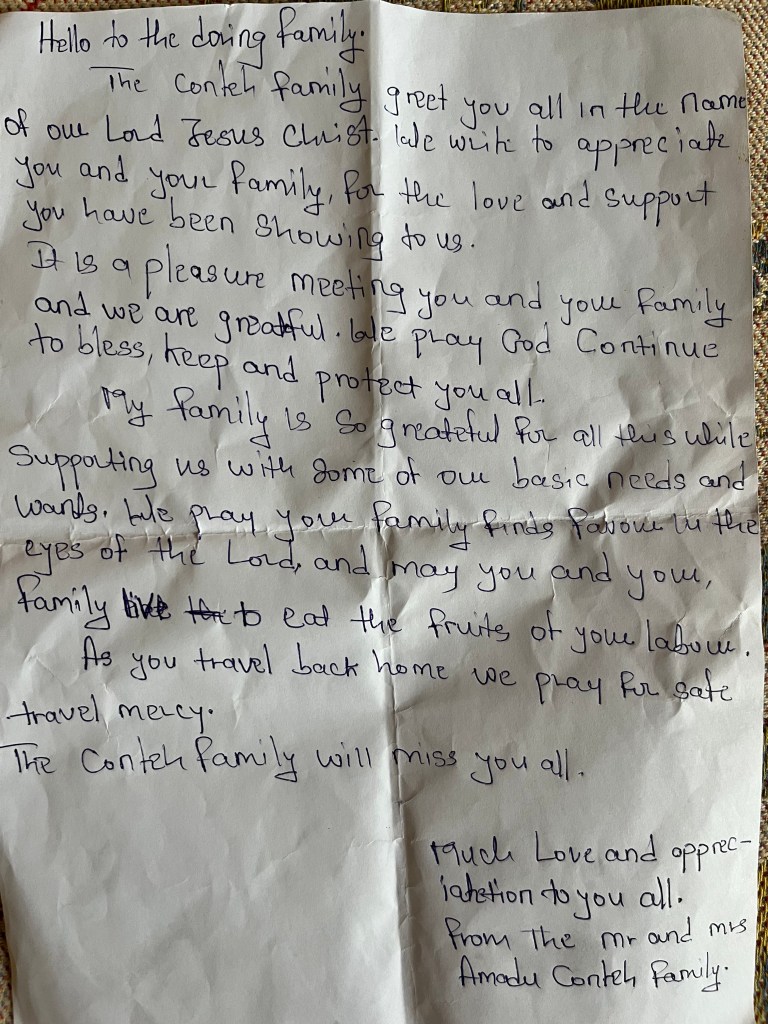 Hello to the doring family.
The Conteh family greet you all in the name
of our Lord Jesus Christ. We write to appreciate
you and your family, for the love and support
you have been showing to us.
It is a pleasure meeting you and your family
and we are greatful. We pray God Continue
to bless, keep and protect you all.
My family is so greateful for all this while
Supporting us with some of our basic needs and
wants. We pray your family finds favour in the
eyes of the Lord, and may you and your,
family live to eat the fruits of your labour.
As you travel back home we pray for safe
travel mercy.
The Conteh family will miss you all.
Much Love and apprec-
iatetion to you all.
From The Mr and mrs
Amadu Conteh family.